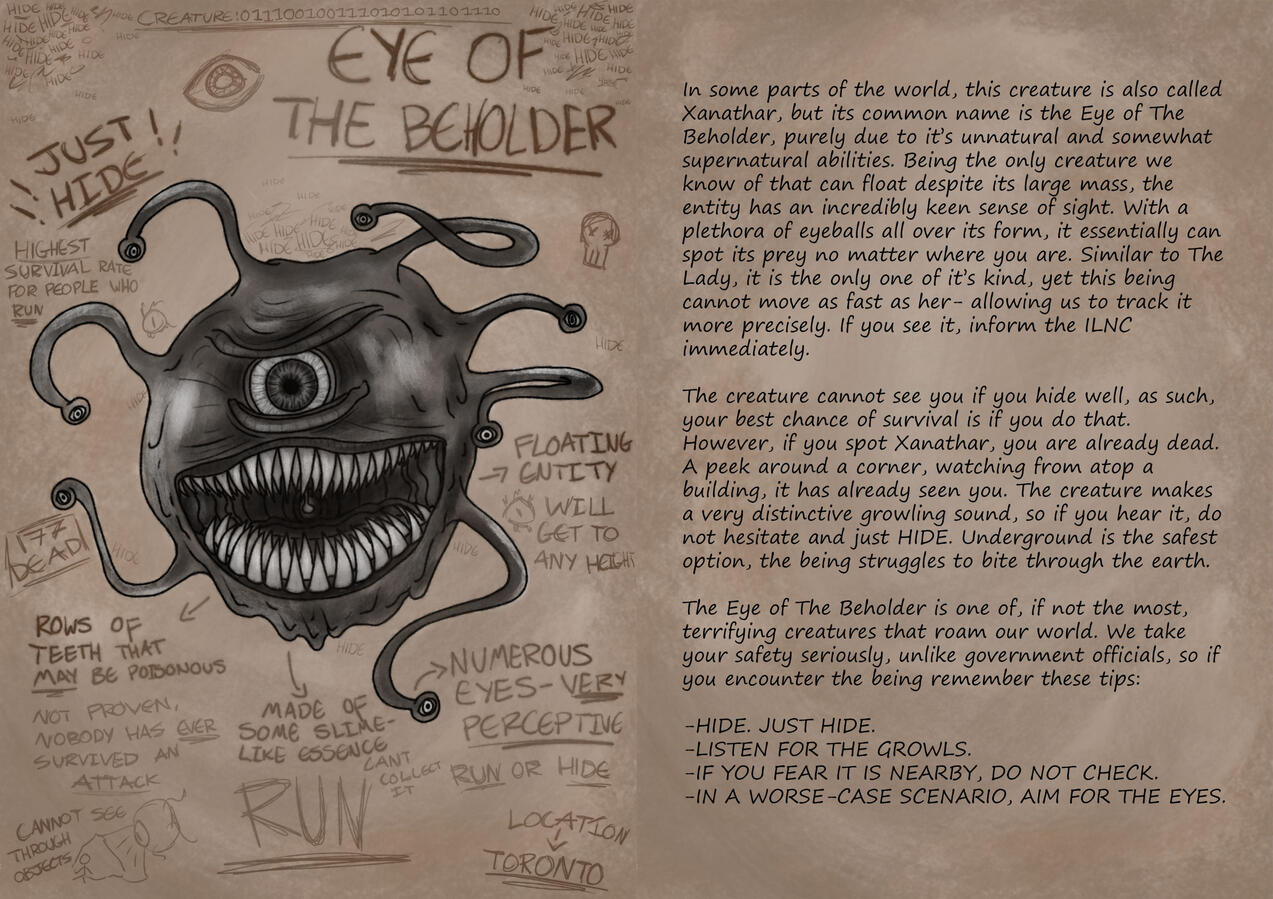 CREATURE:0111001001110101011101110
EYE OF
THE BEHOLDER
HIDE HIDE HIDE
HIDE HIDE HIDE
HIDE
HIDE
HIDE
JUST!!
!! HIDE
HIGHEST
SURVIVAL RATE
FOR PEOPLE WHO
RUN
HIDE
HIDE
HIDE HIDE HIDE
HIDE
HIDE
FLOATING
ENTITY
WILL
GET TO
ANY HEIGHT
HIDE
177
DEAD
HIDE
HIDE
ROWS OF
TEETH THAT
MAY BE POISONOUS
NOT PROVEN,
NOBODY HAS EVER
SURVIVED AN
ATTACK
MADE OF
SOME SLIME-
LIKE ESSENCE
CANT
COLLECT
IT
NUMEROUS
EYES-VERY
PERCEPTIVE
RUN OR HIDE
RUN
CANNOT SEE
THROUGH
OBJECTS
LOCATION
TORONTO
In some parts of the world, this creature is also called
Xanathar, but its common name is the Eye of The
Beholder, purely due to it's unnatural and somewhat
supernatural abilities. Being the only creature we
know of that can float despite its large mass, the
entity has an incredibly keen sense of sight. With a
plethora of eyeballs all over its form, it essentially can
spot its prey no matter where you are. Similar to The
Lady, it is the only one of it's kind, yet this being
cannot move as fast as her- allowing us to track it
more precisely. If you see it, inform the ILNC
immediately.
The creature cannot see you if you hide well, as such,
your best chance of survival is if you do that.
However, if you spot Xanathar, you are already dead.
A peek around a corner, watching from atop a
building, it has already seen you. The creature makes
a very distinctive growling sound, so if you hear it, do
not hesitate and just HIDE. Underground is the safest
option, the being struggles to bite through the earth.
The Eye of The Beholder is one of, if not the most,
terrifying creatures that roam our world. We take
your safety seriously, unlike government officials, so if
you encounter the being remember these tips:
-HIDE. JUST HIDE.
-LISTEN FOR THE GROWLS.
-IF YOU FEAR IT IS NEARBY, DO NOT CHECK.
-IN A WORSE-CASE SCENARIO, AIM FOR THE EYES.